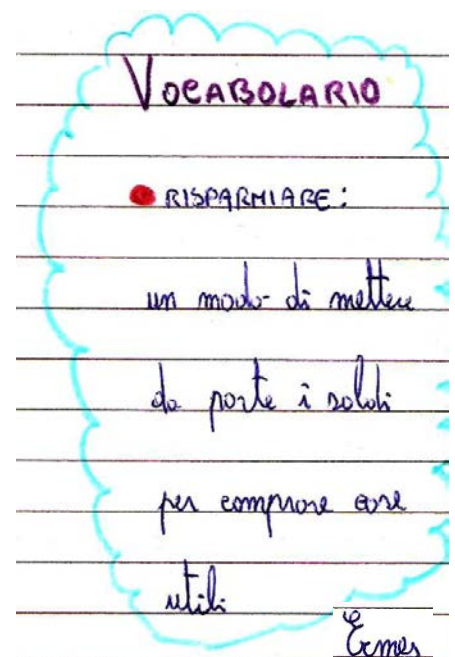 VOCABOLARIO
RISPARMIARE:
un modo di mettere
da parte i soldi
per comprare cose
utili
Ermes